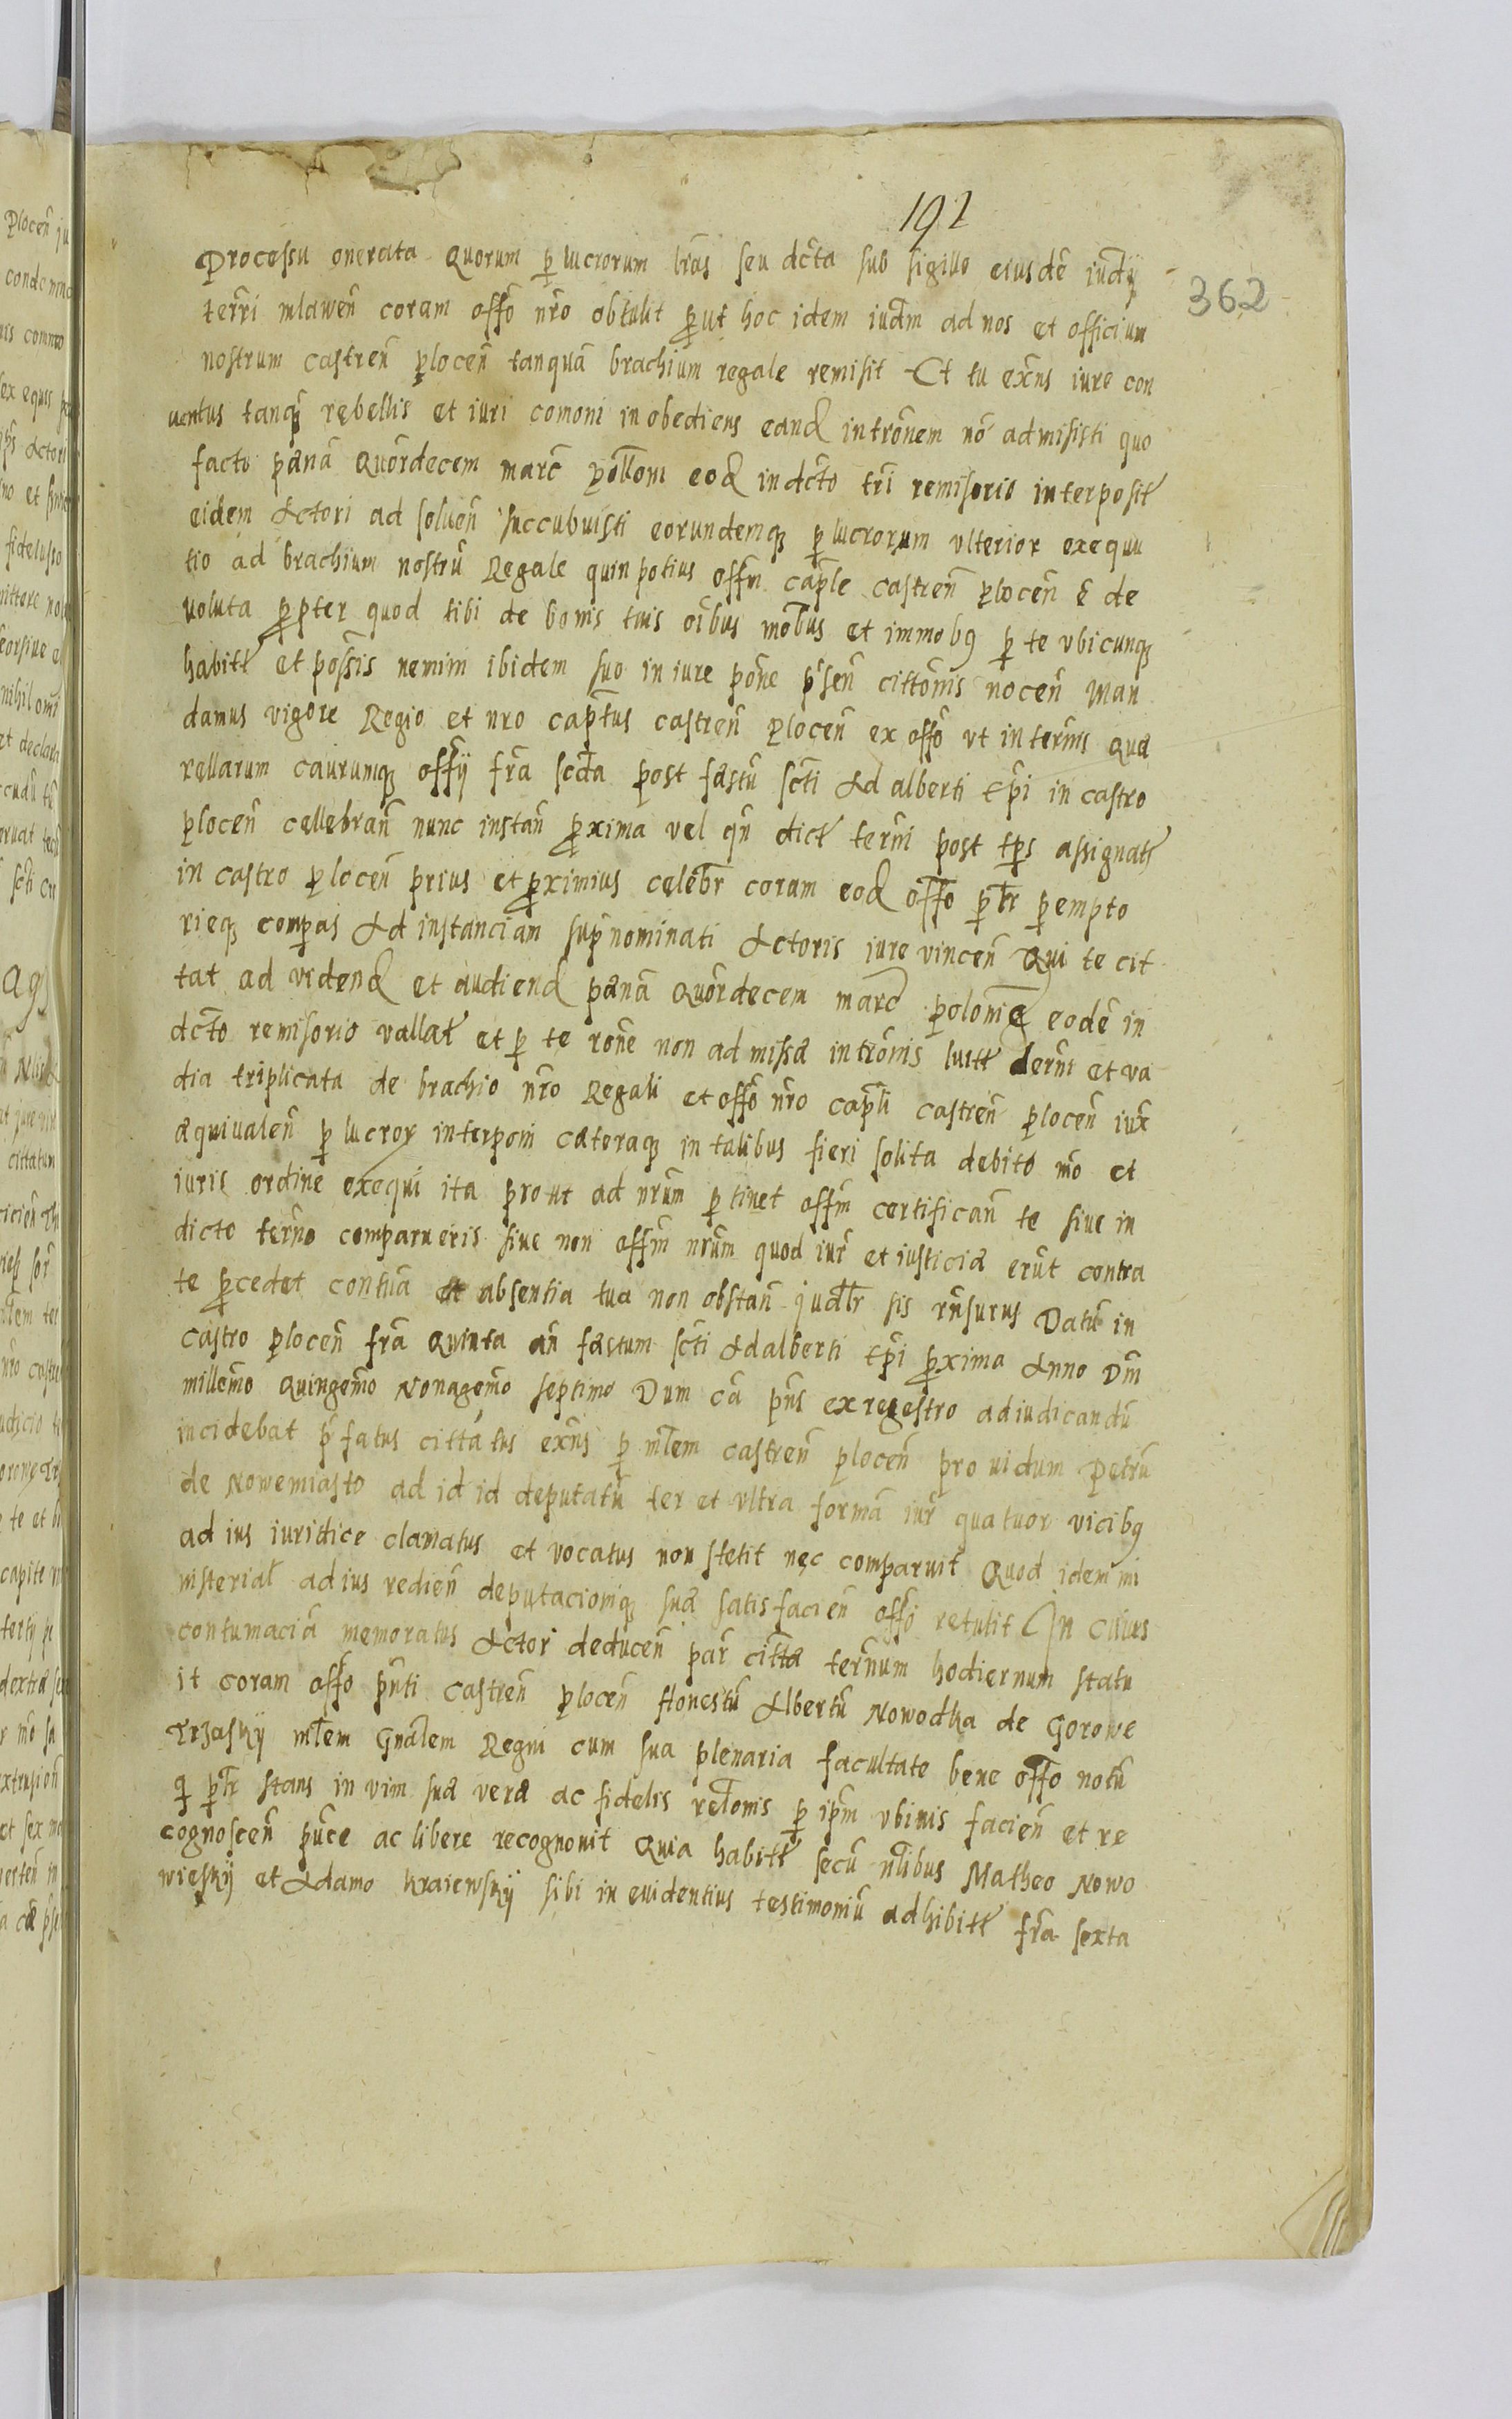 192
362
Processu onerata Quorum p lucrorum lras seu dcta sub sigillo eiusdē iudÿ
terri mlawen̄ coram offō nrō obtulit put hoc idem iudm ad nos et officium
nostrum castren̄ plocen̄ tanquā brachium regale remisit Et tu exn̄s iure con
uentus tanq rebellis et iuri comoni inobediens eand intron̄em nō admisisti quo
facto pœnā Quordecem marc̄ polloni eod indcto tri remisorio interposit
eidem Actori ad soluen̄ succubuisti eorundemq p lucrorum vlterior exequu
tio ad brachium nostrū Regale quin potius offm cap̄le castren̄ plocen̄ ē de
uoluta propter quod tibi de bonis tuis oībus mobus et immobq p te vbicunq
habitt et possis nemini ibidem suo in iure pone p̄sen̄ cittonis nocen̄ Man
damus vigore Regio et nro cap̄tus castren̄ plocen̄ ex offō vt in termīs Quæ
rellarum caurumq offÿ fra scda post fæstū scti Adalberti Ep̄i in castro
plocen̄ cællebran̄ nunc instan̄ pxima vel qn̄ dict termī post tps assignatt
in castro plocen̄ prius et pximius celebr coram eod offo ptr pempto
rieq compas Ad instanciam supnominati Actoris iure vincen̄ Qui te cit
tat ad vidend et audiend pœnā Quordecem marc poloniē eodē in
dcto remisorio vallat et p te rone non admissæ intronis luitt derni et va
dia triplicata de brachio nrō Regali et offō nrō cap̄li castren̄ plocen̄ iux
æquiualen̄ p lucror interponi cæteraq in talibus fieri solita debito mō et
iuris ordine exequi ita prout ad nrum ptinet offm certifican̄ te siue in
dicto termo comparueris siue non offm nrum quod iur et iusticiæ erūt contra
te pcedet contua absentia tua non obstan̄ iudltr sis rn̄surus Datū in
castro plocen̄ fra Quinta an̄ fæstum scti Adalberti Ep̄i pxima Anno Dm̄
millemo Quingemo Nonagemo septimo Dum cā pn̄s ex regestro adiudicandū
incidebat p̄fatus cittatus exn̄s p mlem castren̄ plocen̄ prouidum petrū
de Nowemiasto ad id id deputatū ter et vltra formā iur quatuor vicibq
ad ius iuridice clamatus et vocatus non stetit nec comparuit Quod idem mi
nisterial ad ius redien̄ deputacioniq suæ satisfacien̄ offō retulit In cuius
contumaciā memoratus Actor deducen̄ par citta ternum hodiernum statu
it coram offō pn̄ti castren̄ plocen̄ Honestū Albertū Nowodka de Gorowe
Trzaskÿ mlem Gnālem Regni cum sua plenaria facultate bene offo notū
q ptr stans in vim suæ veræ ac fidelis relonis p ipm vbiuis facien̄ et re
cognoscen̄ pu̅ce ac libere recognouit Quia habitt secū nlibus Matheo Nowo
wieskÿ et Adamo Kraiewskÿ sibi in euidentius testimoniū adhibitt fra sexta